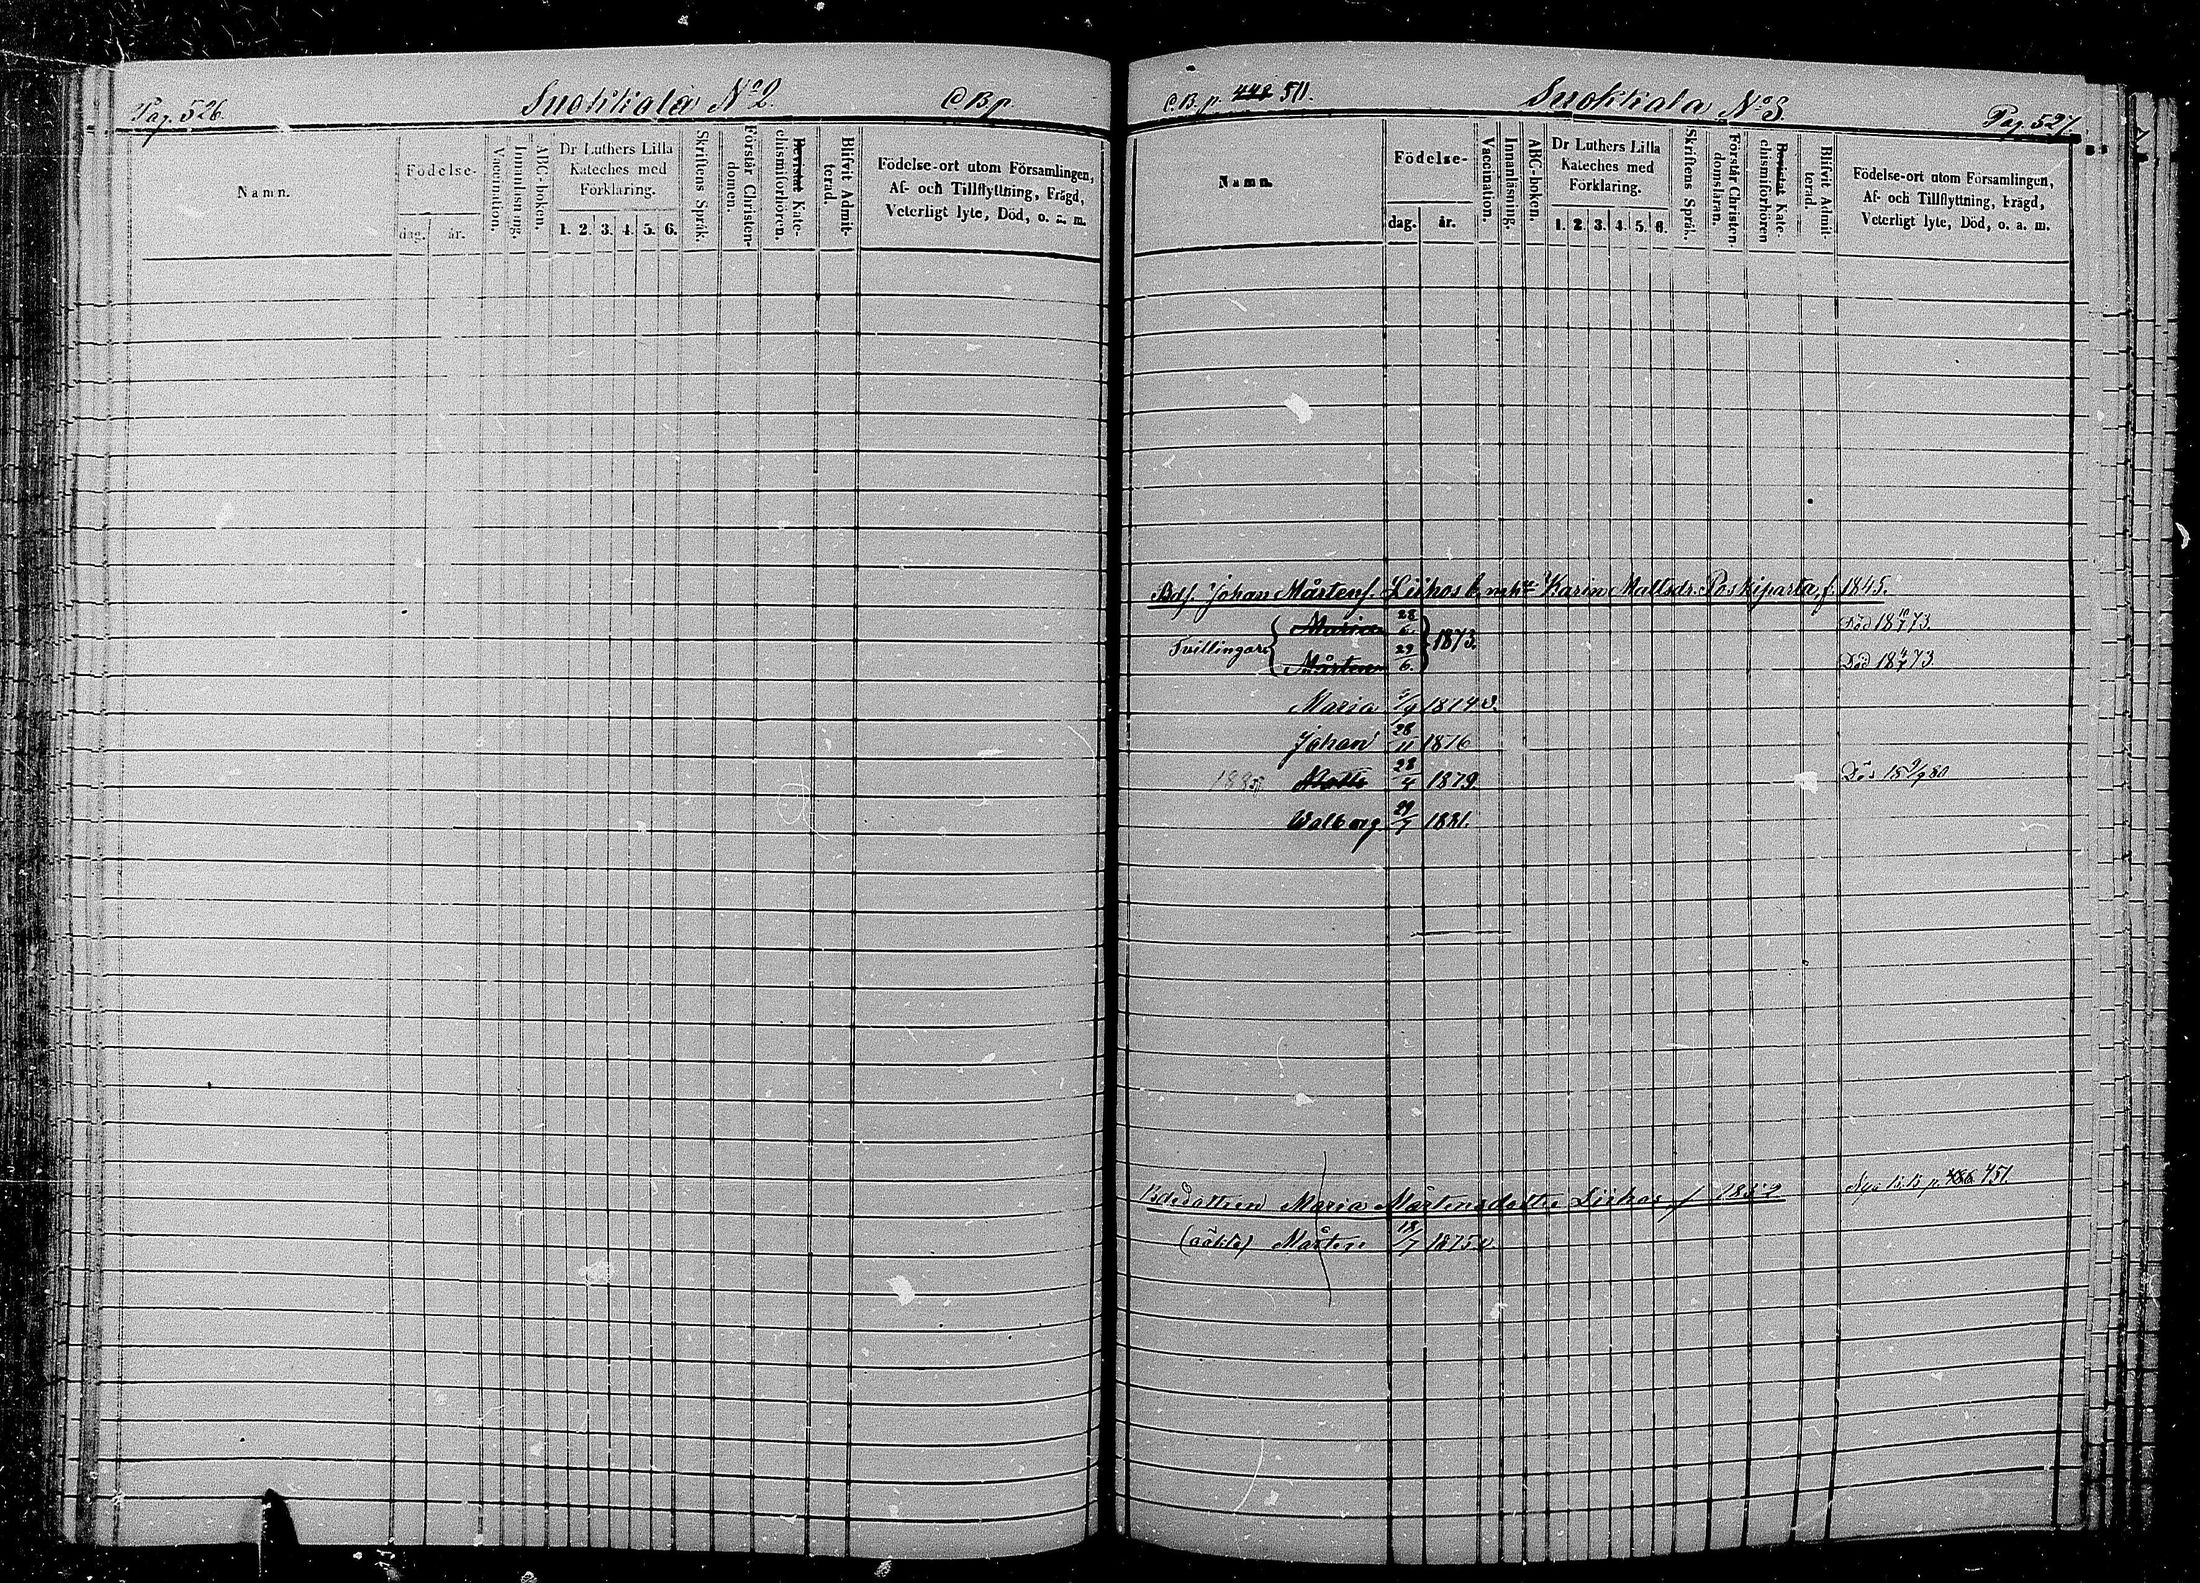 Pag. 526. Suokkala No 2. C.B.p.
Namn.
Födelse-
dag. år.
Vaccination.
Innanläsning.
ABC-boken.
Dr Luthers Lilla
Kateches med
Förklaring.
1. 2. 3. 4. 5. 6.
Skriftens Språk.
Förstår Christen-
domen.
Bevistat Kate-
chismiförhören.
Blifvit Admit-
terad.
Födelse-ort utom Församlingen,
Af- och Tillflyttning, Frägd,
Veterligt lyte, Död, o. a. m.
C.B.p. 448 511. Suokkala No 3. Pag. 527.
Namn.
Födelse-
dag. år.
Vaccination.
Innanläsning.
ABC-boken.
Dr Luthers Lilla
Kateches med
Förklaring.
1. 2. 3. 4. 5. 6.
Skriftens Språk.
Förstår Christen-
domsläran.
Bevistat Kate-
chismiförhören
Blifvit Admit-
terad.
Födelse-ort utom Församlingen,
Af- och Tillflyttning, Frägd,
Veterligt lyte, Död, o. a. m.
Bdf. Johan Mårtenf. Liikos Karin Mattsdr. Poskiparta, f. 1845.
Tvillingar Maria 28/6 1873. Död 18 73.
Mårten 29/6. Död 18 73
Maria 1874 v.
Johan 28/11 1876
Matts 28/4 1879. Död 18 80
Walborg 29/7 1881.
Bdedottren Maria Mårtensdotter Liikas f 1852 Nya K.B. p. 486 451.
(oäkta) Mårten 18/7 1875 v.